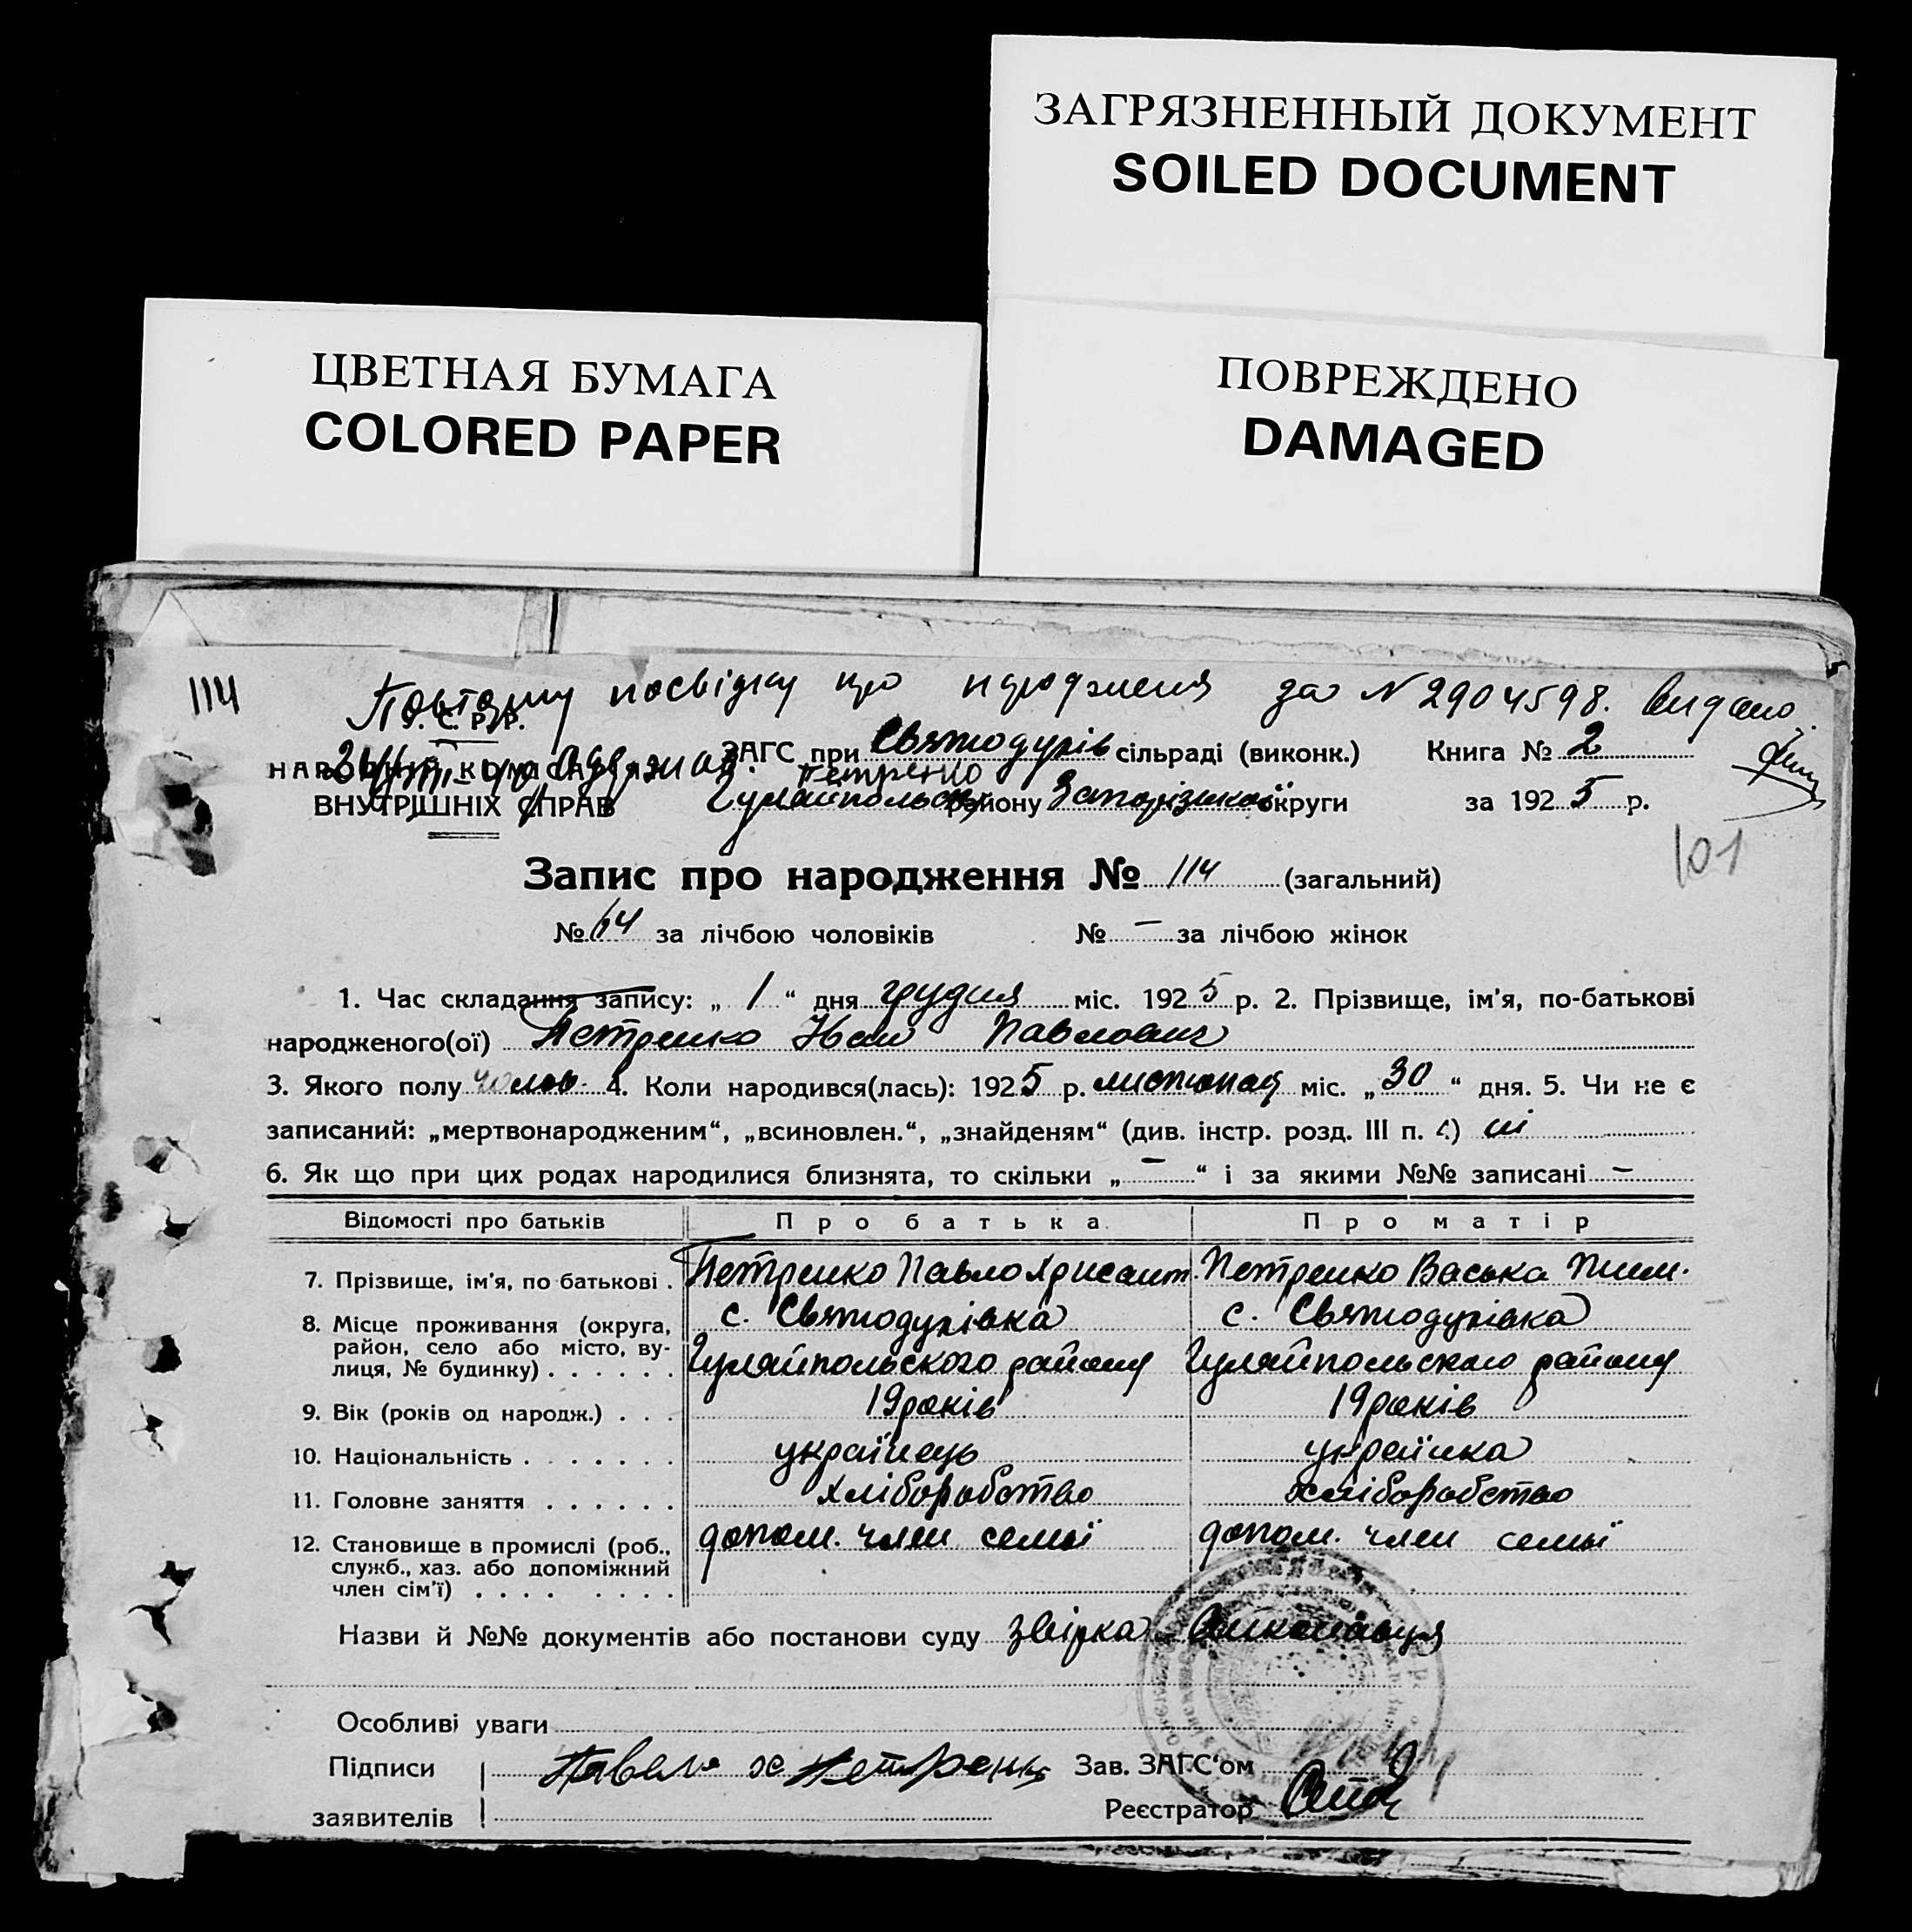 ЗАГРЯЗНЕННЫЙ ДОКУМЕНТ
SOILED DOCUMENT
ЦВЕТНАЯ БУМАГА
COLORED PAPER
ПОВРЕЖДЕНО
DAMAGED
114
Повторну посвідку про народження за N 2904598. видано
У. С. Р. Р.
ЗАГС при Святодухів сільраді (виконк.) Книга № 2
НАРОДНИЙ КОМІСАРІЯТ
Петренко
ВНУТРІШНІХ СПРАВ Гуляйпольськ району Запорізької округи за 1925 р.
101
Запис про народження № 114 (загальний)
№ 64 за лічбою чоловіків № — за лічбою жінок
1. Час складання запису: „ 1 “ дня грудня міс. 1925 р. 2. Прізвище, ім'я, по-батькові
народженого(ої) Петренко Иван Павлович
3. Якого полу чолов. 4. Коли народився(лась): 1925 р. листопад міс. „30“ дня. 5. Чи не є
записаний: „мертвонародженим“, „всиновлен.“, „знайденям“ (див. інстр. розд. III п. 4) ні
6. Як що при цих родах народилися близнята, то скільки „—“ і за якими №№ записані —
Відомості про батьків Про батька Про матір
7. Прізвище, ім'я, по батькові . Петренко Павло Хрисант. Петренко Васька Пим.
8. Місце проживання (округа, с. Святодухівка с. Святодухівка
район, село або місто, ву-
лиця, № будинку) . . . . . . Гуляйпольского району Гуляйпольского району
9. Вік (років од народж.) . . . 19 років 19 років
10. Національність . . . . . . . українець українка
11. Головне заняття . . . . . . хліборобство хліборобство
12. Становище в промислі (роб., допом. член семьї допом. член семьї
служб., хаз. або допоміжний
член сім'ї) . . . . . . . .
Назви й №№ документів або постанови суду звірка
Особливі уваги
Підписи Павел х Петренко Зав. ЗАГС‘ом
заявителів Реєстратор